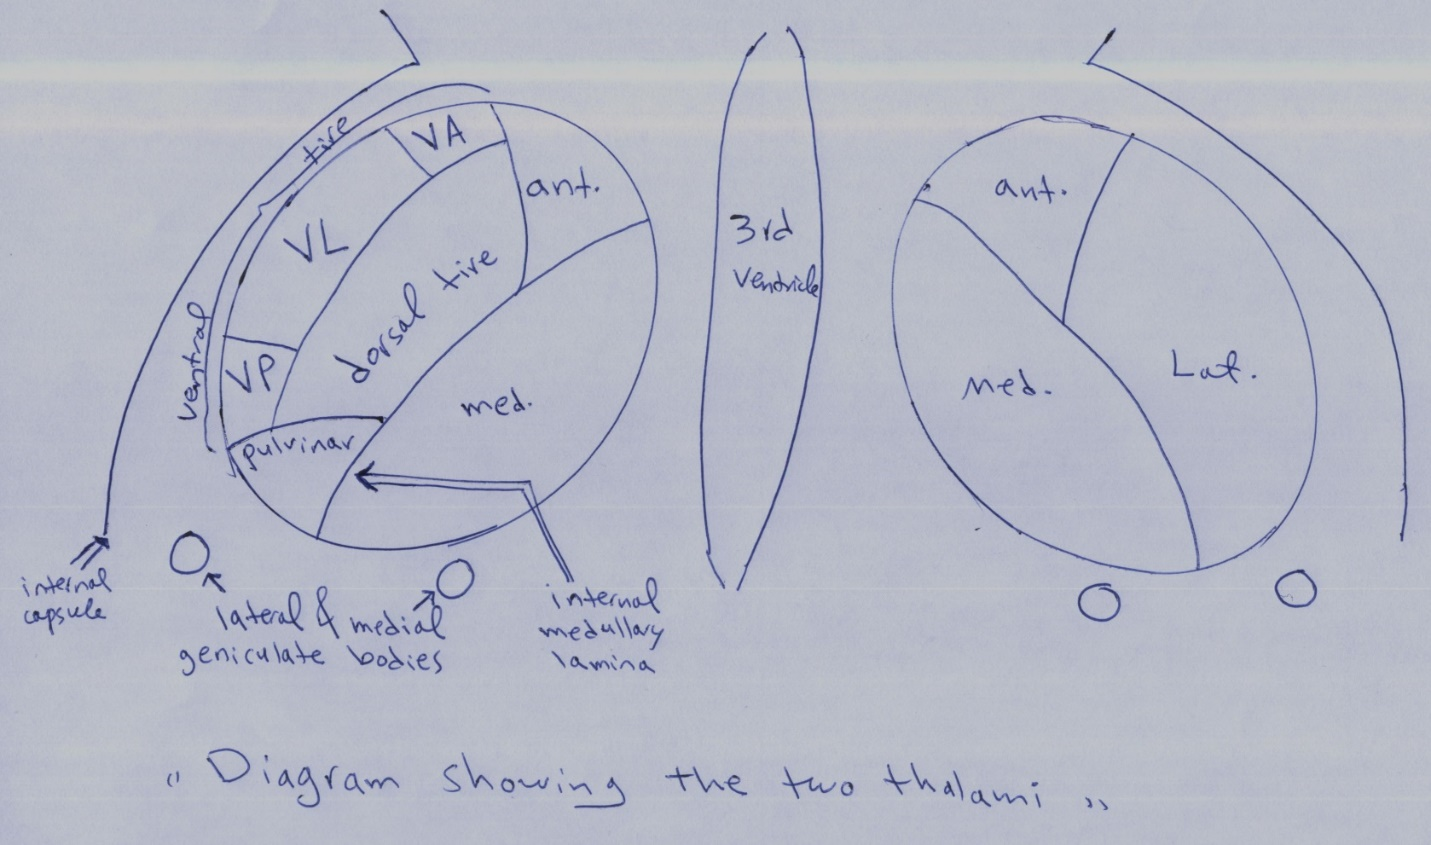 VA
ant.
VL
dorsal tire
ventral tire
VP
med.
pulvinar
internal
capsule
lateral & medial
geniculate bodies
internal
medullary
lamina
3rd
Ventricle
ant.
Med.
Lat.
„ Diagram showing the two thalami „